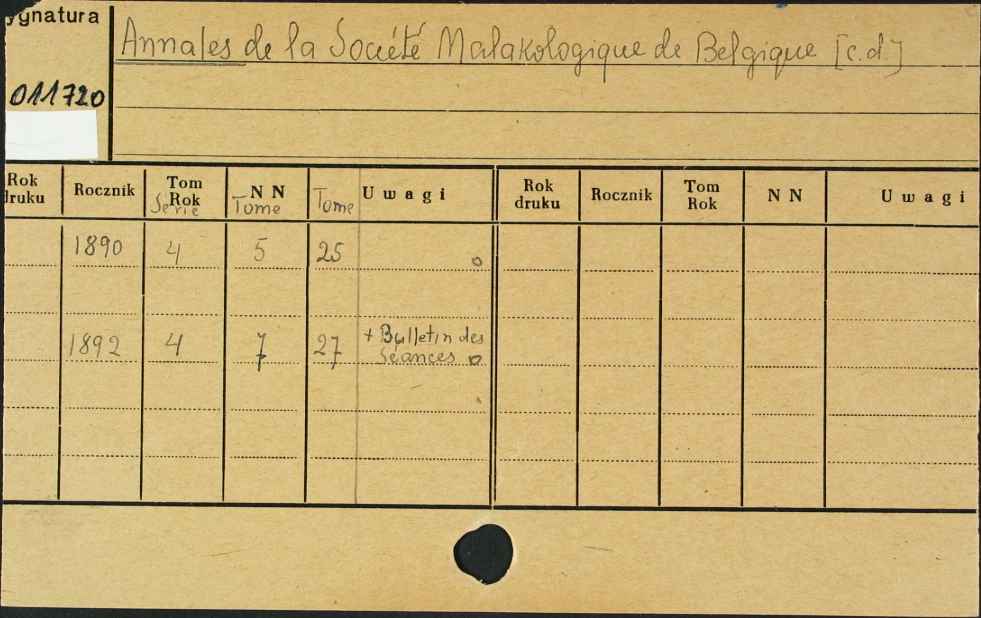 ygnatura
Annales de la Société Malakologique de Belgique [c.d.]
011720
Rok druku Rocznik Tom Rok Serie N N Tome Tome Uwagi Rok druku Rocznik Tom Rok N N Uwagi
1890 4 5 25 o
1892 4 7 27 + Bulletin des
Séances o